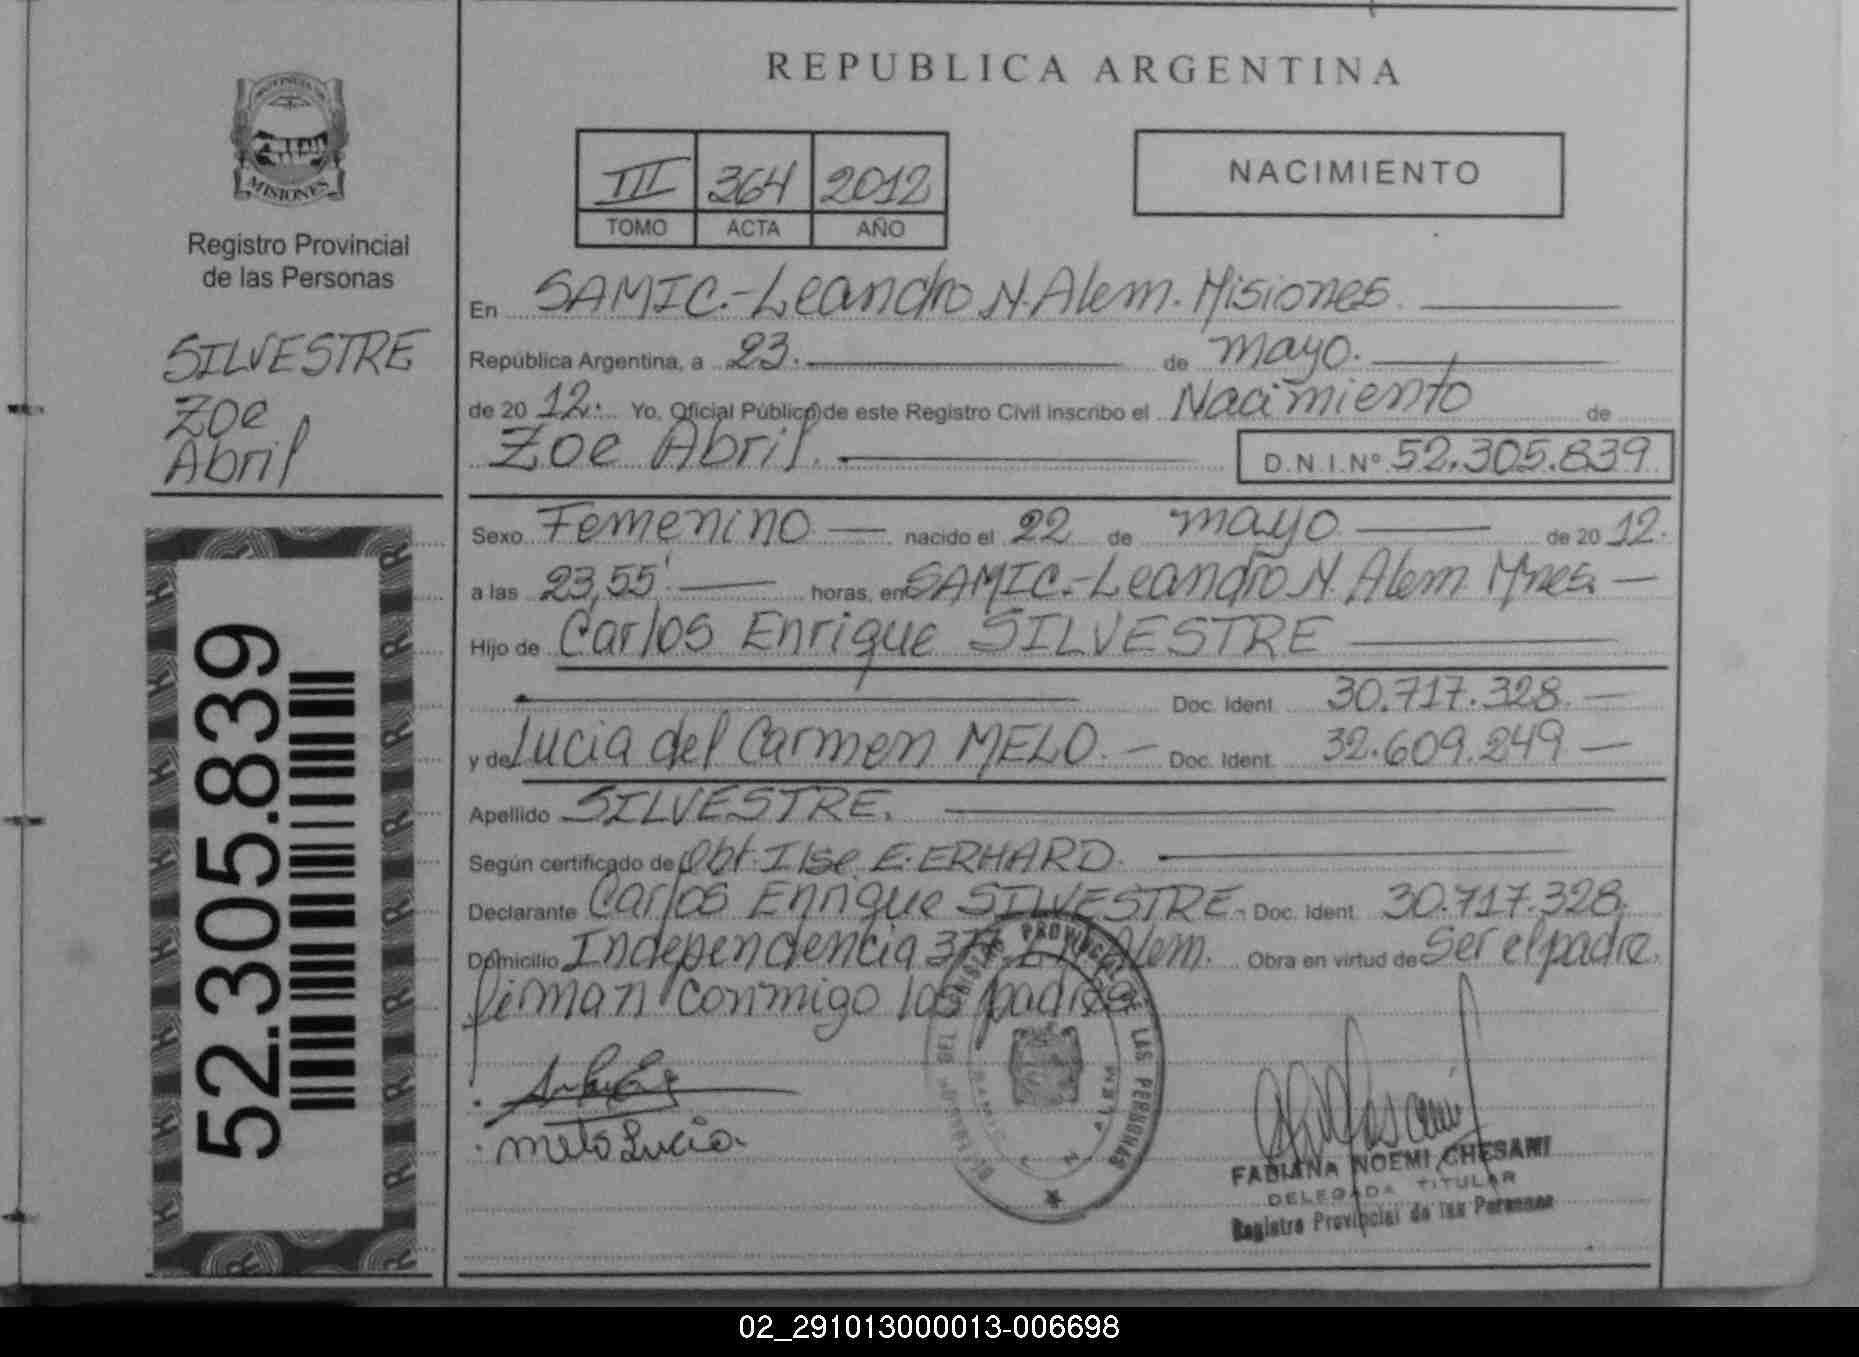 REPUBLICA ARGENTINA
PROVINCIA DE
MISIONES
Registro Provincial
de las Personas
SILVESTRE
Zoe
Abril
52.305.839
III 364 2012
TOMO ACTA AÑO
NACIMIENTO
En SAMIC.-Leandro N. Alem. Misiones.
República Argentina, a 23. de mayo.
de 20 12. Yo, Oficial Público de este Registro Civil inscribo el Nacimiento de
Zoe Abril. D.N.I.Nº 52.305.839
Sexo Femenino nacido el 22 de mayo de 20 12.
a las 23,55' horas, en SAMIC.-Leandro N. Alem Mnes.
Hijo de Carlos Enrique SILVESTRE
Doc. Ident. 30.717.328.
y de Lucia del Carmen MELO. Doc. Ident. 32.609.249
Apellido SILVESTRE.
Según certificado de Obt. Ilse E. ERHARD.
Declarante Carlos Enrique SILVESTRE. Doc. Ident. 30.717.328.
Domicilio Independencia L.N. Alem. Obra en virtud de Ser el padre.
firman conmigo los padres
Melo Lucia
PROVINCIAL DE LAS PERSONAS
ALEM
FABIANA NOEMI CHESANI
DELEGADA TITULAR
Registro Provincial de las Personas
02_291013000013-006698